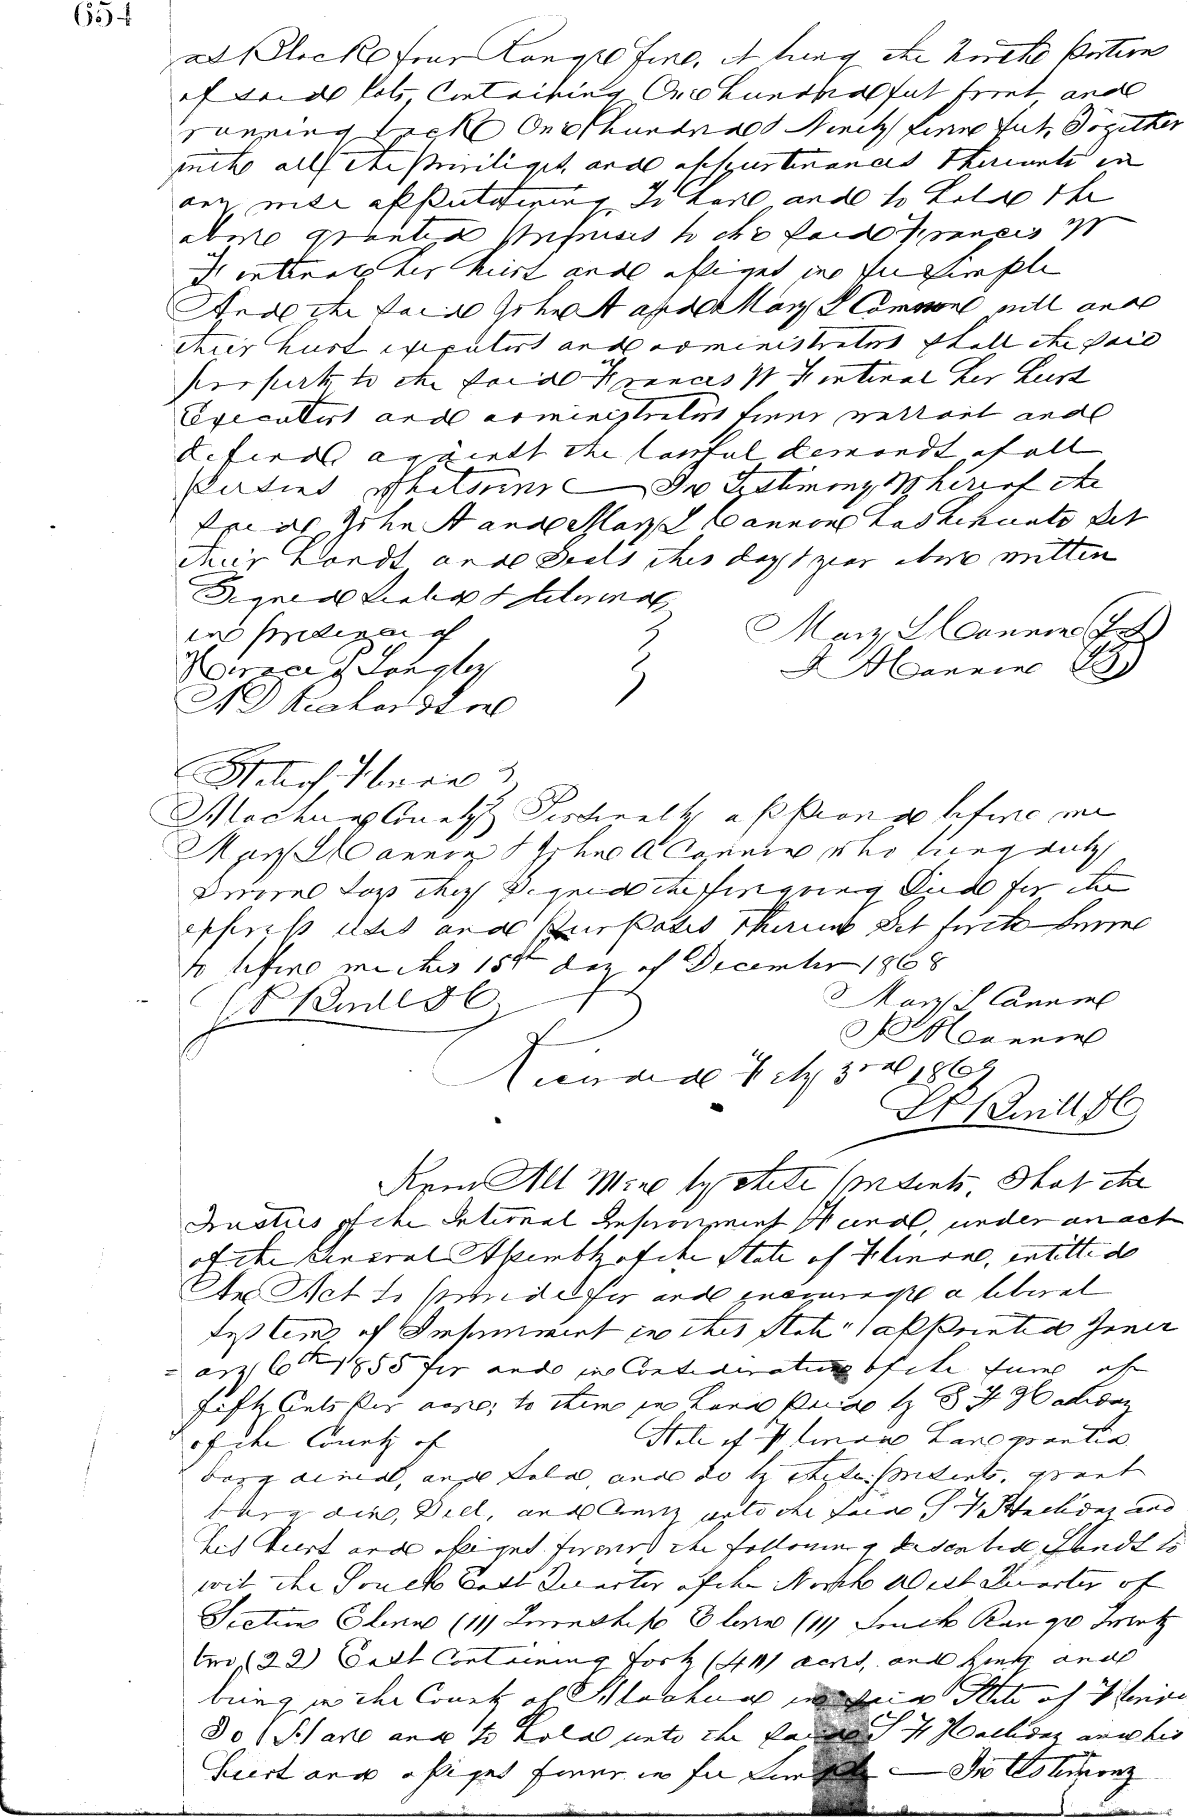 654
as Block four Range five, it being the North portion
of said lots, Containing One hundred feet front, and
running back One hundred & Ninety feet, Together
with all the priviliges, and appurtinances thereunto in
any wise appertaining To have and to hold the
above granted premises to the said Frances W
her heirs and assigns in fee simple
And the said John A and Mary L Cannon will and
their heirs executors and administrators shall the said
property to the said Frances W her heirs
Executors and administrators forever warrant and
defend against the lawful demands of all
persons whatsoever — In Testimony Whereof the
said John A and Mary L Cannon has hereunto Set
their hands and Seals this day & year above written
Signed Sealed & delivered
in presence of Mary L Cannon (LS)
Horace P Langley J A Cannon (LS)
N D Richardson
State of Florida
Alachua County Personally appeared before me
Mary L Cannon & John A Cannon who being duly
sworn says they Signed the foregoing Deed for the
express uses and purposes therein Set forth Sworn
to before me this 15th day of December 1868
Mary L Cannon
J A Cannon
Recorded Feby 3rd 1869
Know All Men by these presents, That the
Trustees of the Internal Improvement Fund, under an act
of the General Assembly of the State of Florida, entitled
An Act to provide for and encourage a liberal
System of Improvement in this State" approved Janu
= ary 6th 1855 for and in Consideration of the sum of
fifty Cents per acre; to them in hand paid by S F Halliday
of the County of State of Florida have granted
bargained, and sold, and do by these presents, grant
bargain, Sell, and Convey unto the said S F Halliday and
his heirs and assigns forever the following described Lands to
wit the South East Quarter of the North West Quarter of
Section Eleven (11) Township Eleven (11) South Range Twenty
two (22) East Containing forty (40) acres, and lying and
being in the County of Alachua in said State of Florida
To Have and to hold unto the said S F Halliday and his
heirs and assigns forever in fee Simple — In testimony